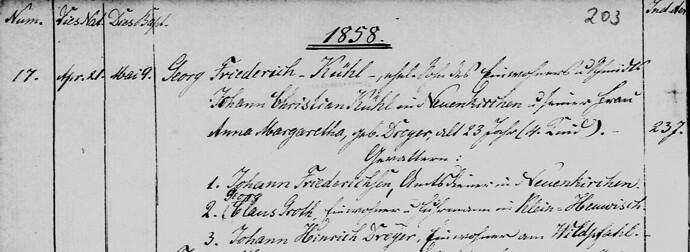 Num. Dies Nat. Dies Bapt. 203
1858.
17. Apr. 21. Mai 9. Georg Friederich Kühl, ehel. Sohn des Einwohners u. Schmidts
Johann Christian Kühl in Neuenkirchen u. seiner Frau
Anna Margaretha, geb. Dreyer, alt 23 Jahr (4. Kind). 23 J.
Gevattern:
1. Johann Friederichsen, Amtsdiener in Neuenkirchen.
Georg
2. Claus Groth, Einwohner u. in Klein-Heuwisch
3. Johann Hinrich Dreyer, Einwohner am Wildpfahl.